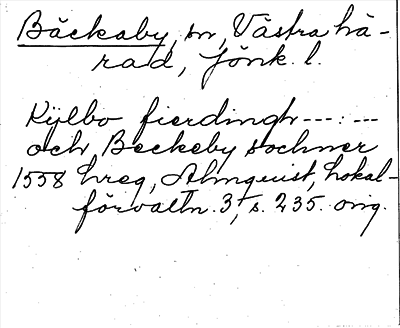 Bäckaby, sn, Västra hä-
rad, Jönk. l.
Kylbo fierdingh ---:---
och Beckeby sochner
1558 hreg, Almquist, Lokal-
förvaltn. 3, s. 235. orig.